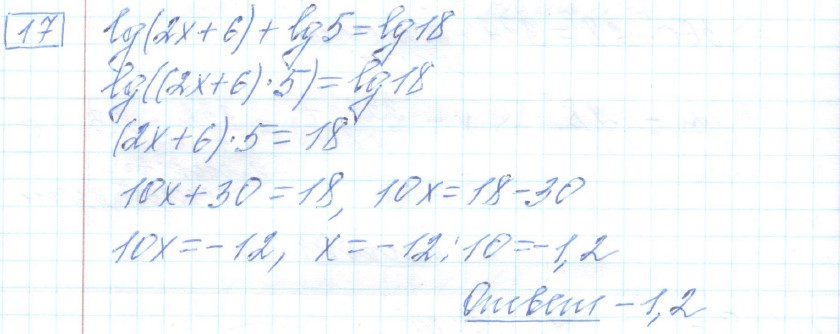 17 lg(2x+6)+lg5=lg18
lg((2x+6)·5)=lg18
(2x+6)·5=18
10x+30=18, 10x=18-30
10x=-12, x=-12:10=-1,2
Ответ -1,2